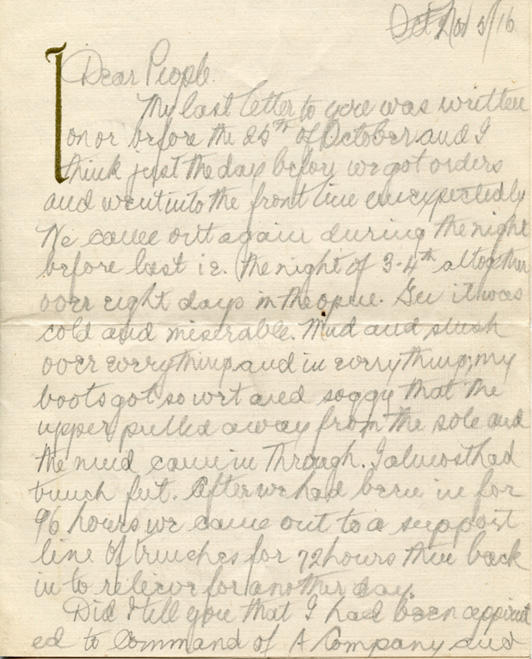 Oct Nov 5/16
Dear People.
My last letter to you was written
on or before the 25th of October and I
think just the day before we got orders
and went into the front line unexpectedly
We came out again during the night
before last i.e. the night of 3-4th altogether
over eight days in the open. Gee it was
cold and miserable. Mud and slush
over everything and in everything, my
boots got so wet and soggy that the
upper pulled away from the sole and
the mud came in through. I almost had
trench feet. After we had been in for
96 hours we came out to a support
line of trenches for 72 hours then back
in to relieve for another day.
Did I tell you that I had been appoint
ed to command of A Company and